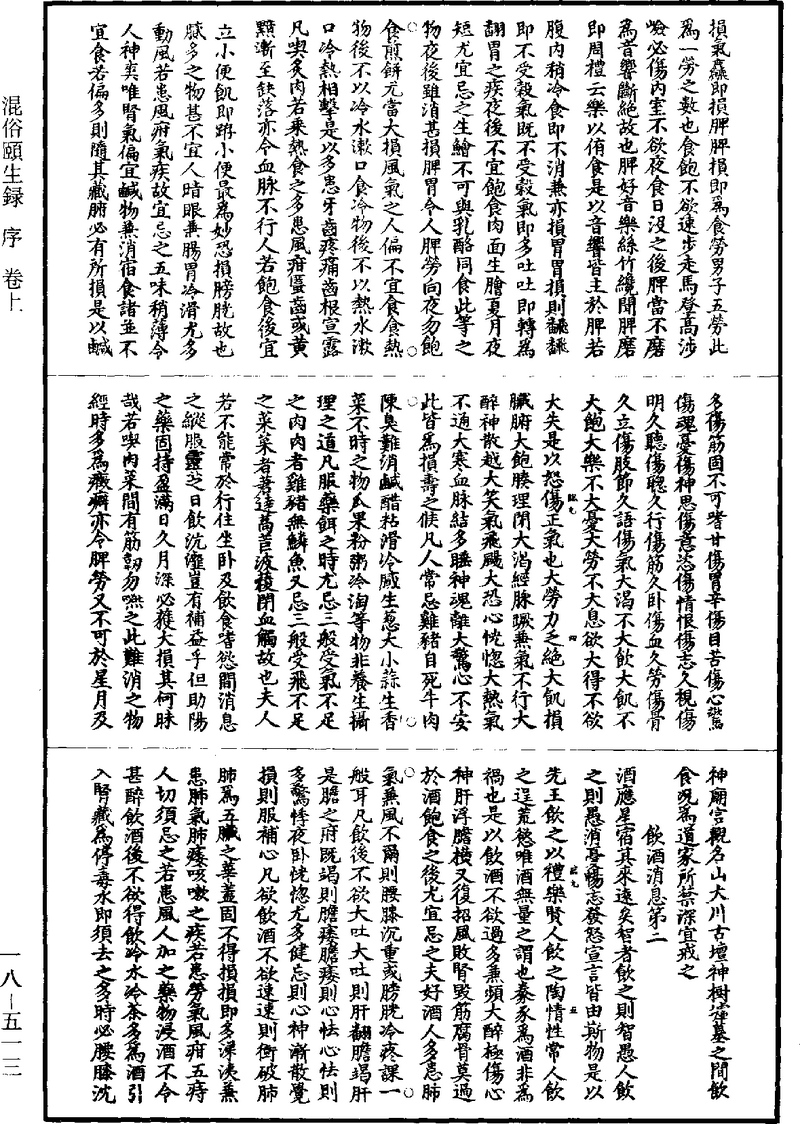 損氣麤即損脾脾損即為食勞男子五勞此
為一勞之數也食飽不欲速步走馬登高涉
嶮必傷內室不欲夜食日沒之後脾當不磨
為音響斷絕故也脾好音樂絲竹纔聞脾磨
即周禮云樂以侑食是以音響皆主於脾若
腹內稍冷食即不消兼亦損胃胃損則翻翻
即不受穀氣既不受穀氣即多吐吐即轉為
翻胃之疾夜後不宜飽食肉面生膾夏月夜
短尤宜忌之生鱠不可與乳酪同食此等之
物夜後雖消甚損脾胃令人脾勞向夜勿飽
食煎餅尤當大損風氣之人偏不宜食食熱
物後不以冷水漱口食冷物後不以熱水漱
口冷熱相擊是以多患牙齒疼痛齒根宣露
凡喫炙肉若乘熱食之多患風疳䘌齒或黃
黯漸至缺落亦令血脉不行人若飽食後宜
立小便飢即蹲小便最為妙恐損膀胱故也
膩多之物甚不宜人暗眼兼腸胃冷滑尤多
動風若患風疳氣疾故宜忌之五味稍薄令
人神爽唯腎氣偏宜鹹物兼消宿食諸並不
宜食若偏多則隨其藏腑必有所損是以鹹
多傷筋固不可嗜甘傷胃辛傷目苦傷心驚
傷魂憂傷神思傷意恣傷情恨傷志久視傷
明久聽傷聰久行傷筋久臥傷血久勞傷骨
久立傷肢節久語傷氣大渴不大飲大飢不
大飽大樂不大憂大勞不大息欲大得不欲
大失是以恐傷正氣也大勞力乏絕大飢損
臟腑大飽腠理閉大渴經脉蹶兼氣不行大
醉神散越大笑氣飛颺大恐心恍惚大熱氣
不通大寒血脉結多睡神魂離大驚心不安
此皆為損壽之候凡人常忌雞豬自死牛肉
陳臭難消鹹醋粘滑冷膩生蔥大小蒜生香
菜不時之物瓜果粉粥冷淘等物非養生攝
理之道凡服藥餌之時尤忌三般受氣不足
之肉肉者雞豬無鱗魚又忌三般受飛不足
之菜菜者莙薘萵苣波稜閉血觸故也夫人
若不能常於行住坐卧及飲食嗜慾間消息
之縱服靈芝日飲沆瀣豈有補益乎但助陽
之藥固持盈滿日久月深必獲大損其何昧
哉若喫肉菜間有筋韌勿嚥之此難消之物
經時多為癥癖亦令脾勞又不可於星月及
神廟宮觀名山大川古壇神樹塋墓之間飲
食況為道家所禁深宜戒之
飲酒消息第二
酒應星宿其來遠矣智者飲之則智愚人飲
之則愚消憂暢志發怒宣言皆由斯物是以
先王飲之以禮樂賢人飲之陶情性常人飲
之逞荒慾唯酒無量之謂也豢豕為酒非為
禍也是以飲酒不欲過多兼頻大醉極傷心
神肝浮膽橫又復招風敗腎毀筋腐骨莫過
於酒飽食之後尤宜忌之夫好酒人多患肺
氣兼風不爾則腰膝沉重或膀胱冷疼課一
般耳凡飲後不欲大吐大吐則肝翻膽竭肝
是膽之府既竭則膽痿膽痿則心怯心怯則
多驚悸夜卧恍惚尤多健忘則心神漸散覺
損則服補心凡欲飲酒不欲速速則衝破肺
肺為五臟之華蓋固不得損損即多涕洟兼
患肺氣肺痿咳嗽之疾若患勞氣風疳五痔
人切須忌之若患風人加之藥物浸酒不令
甚醉飲酒後不欲得飲冷水冷茶多為酒引
入腎藏為停毒水即須去之多時必腰膝沈
混俗頤生録 序 卷上
一八—五一三